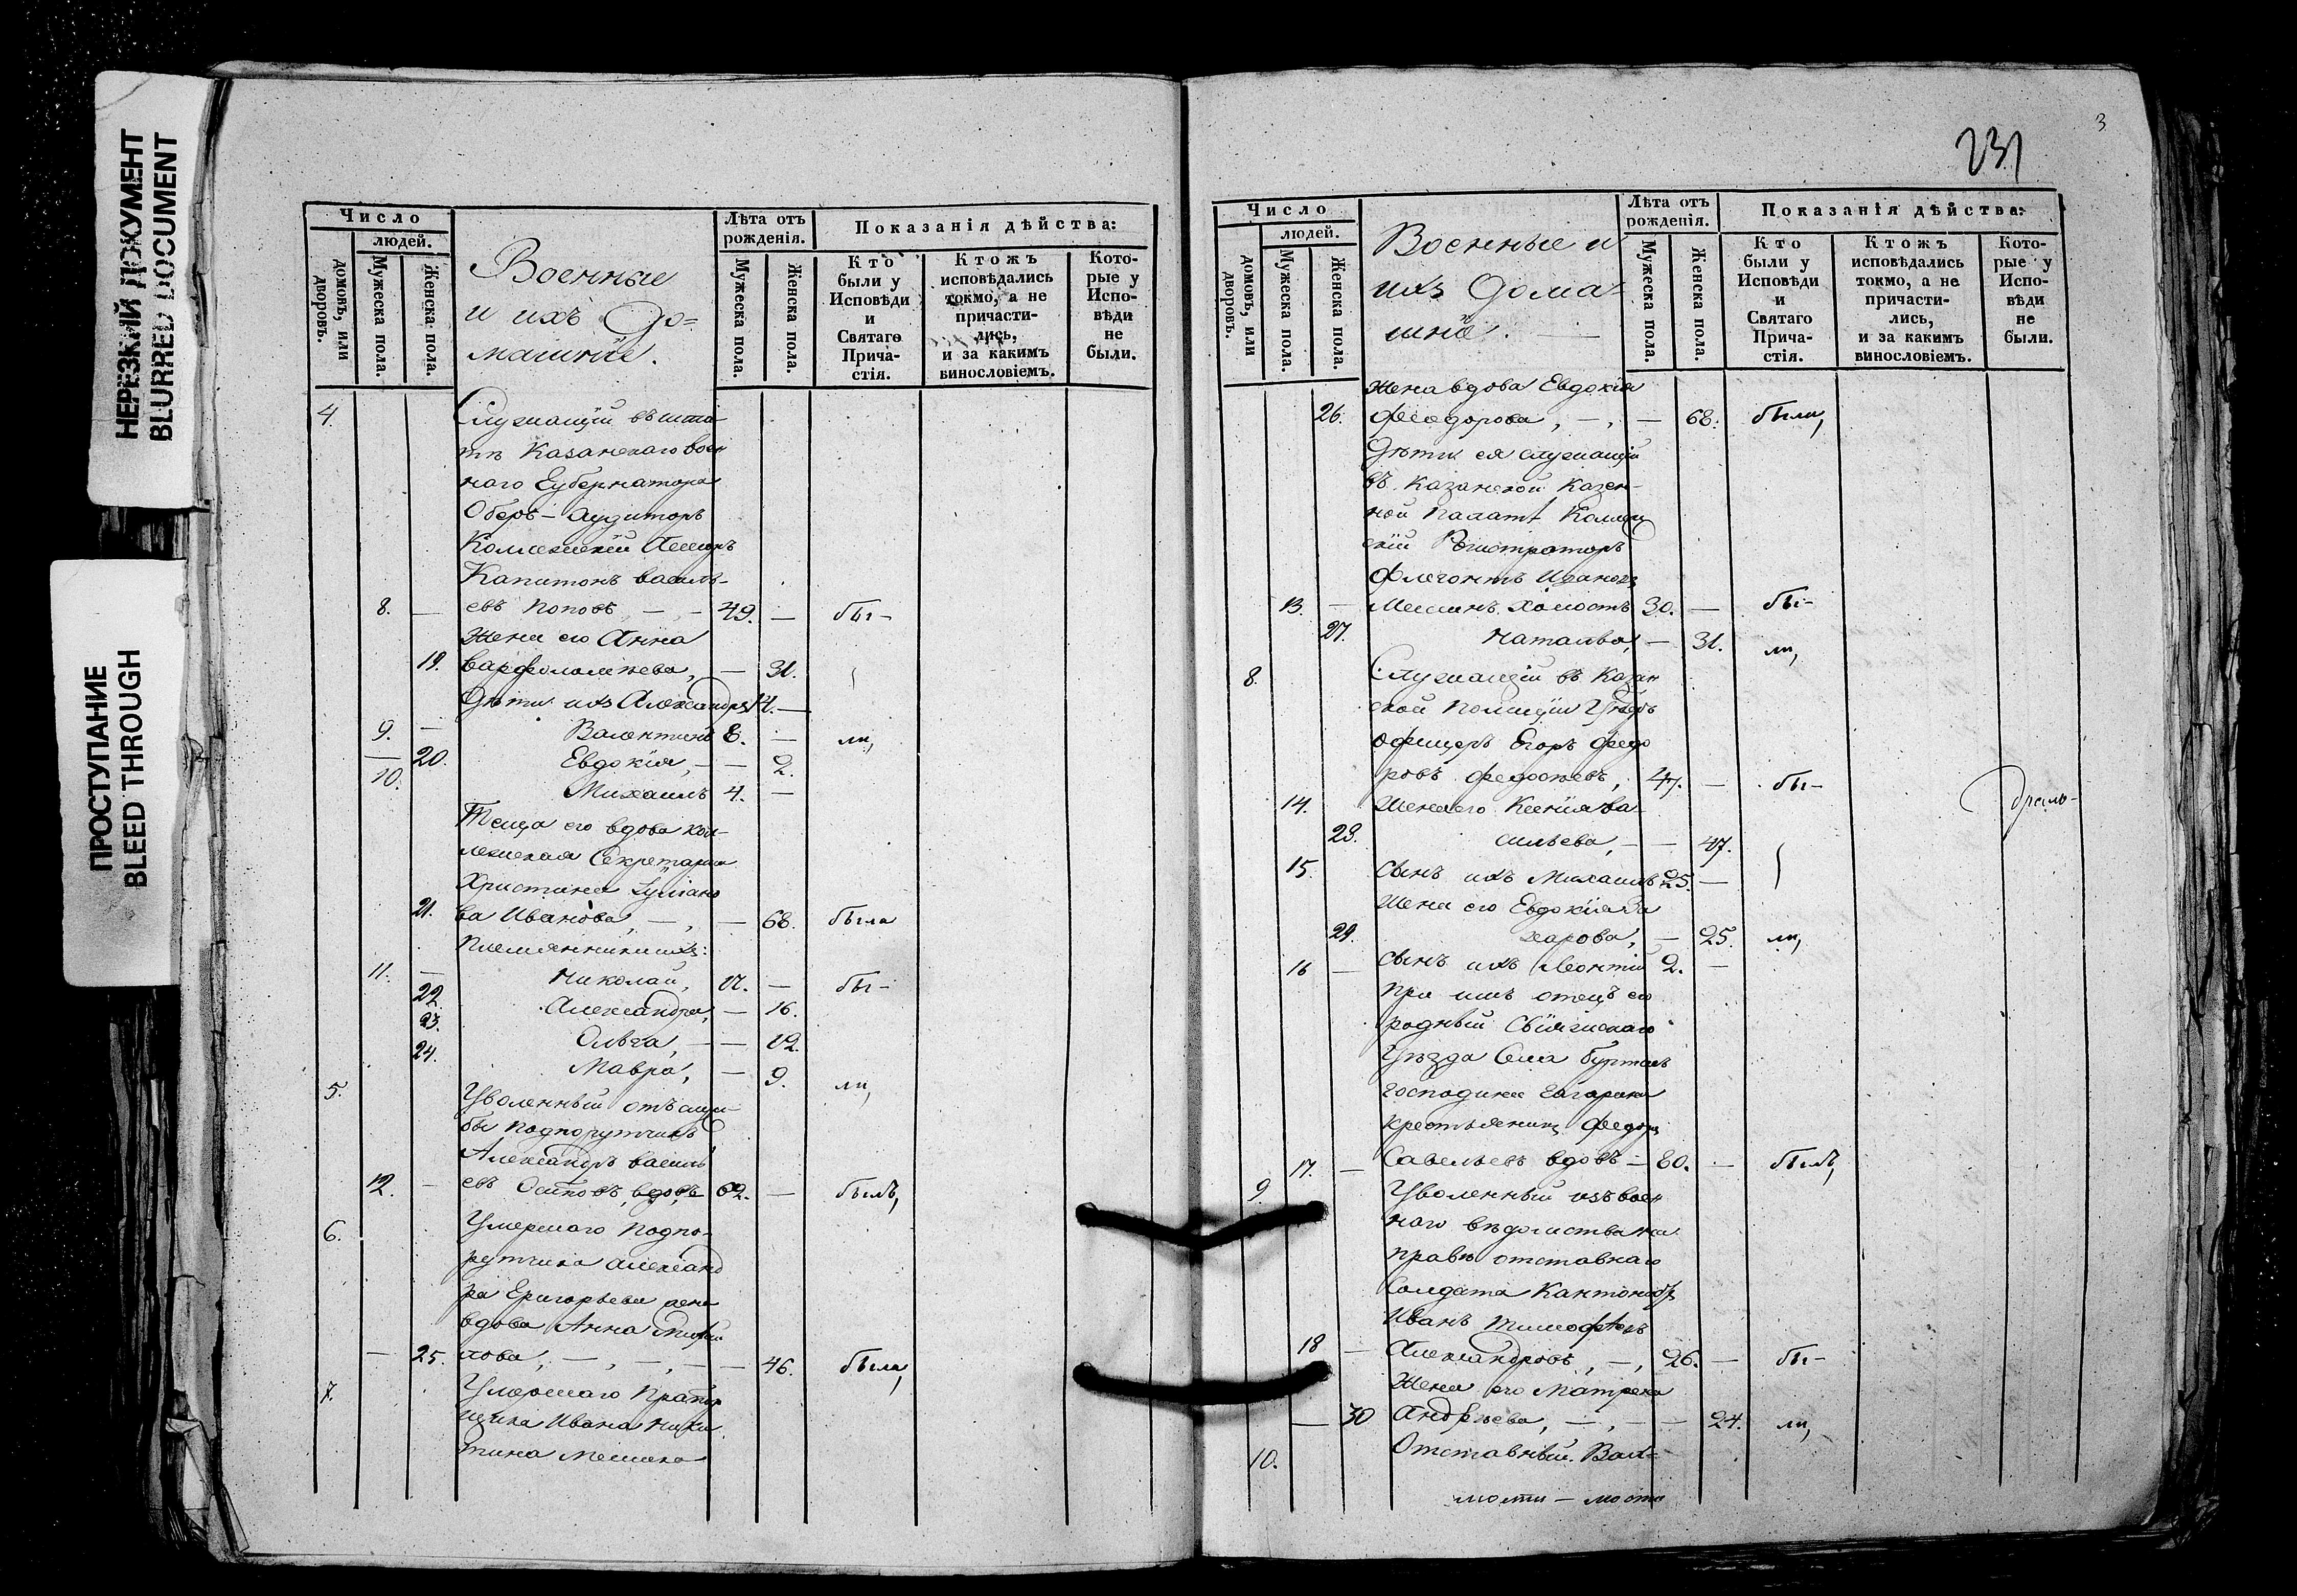 НЕРЕЗКИЙ ДОКУМЕНТ
BLURRED DOCUMENT
ПРОСТУПАНИЕ
BLEED THROUGH
Число
людей.
домовъ, или дворовъ.
Мужеска пола.
Женска пола.
Военные
и ихъ до=
машніе.
Лѣта отъ
рожденія.
Мужеска пола.
Женска пола.
Показанія дѣйства:
Кто
были у
Исповѣди
и
Святаго
Прича-
стія.
Ктожъ
исповѣдались
токмо, а не
причасти-
лись,
и за какимъ
винословіемъ.
Кото-
рые у
Испо-
вѣди
не
были.
4. Служащій въ шта-
тѣ Казанскаго Воен
наго Губернатора
Оберъ-Аудиторъ
Коллежскій Ассесоръ
Капитонъ Василь-
8. — евъ Поповъ, — , — 49. — бы-
Жена его Анна
19. Варфоломѣева, — 31.
Дѣти ихъ Александръ 14. —
9. — Валентинъ 8. — ли,
20. Евдокія, — — 2.
10. Михаилъ 4. —
Теща его вдова Кол-
лежская Секретарша
Христина
21. ва Иванова, — , — 68. была
Племянники ихъ:
11. — Николай, 17. — бы-
22. Александра, — 16.
23. Ольга, — — 12.
24. Мавра, — 9. ли,
5. Уволенный отъ служ-
бы Подпорутчикъ
Александръ Василь
12. — евъ Осиповъ, вдовъ 62. — былъ,
6. Умершаго Подпо-
рутчика Александ
ра Григорьева жена
вдова Анна
— 25. лова, — , — , — — 46. была,
7. Умершаго Прапор
щика Ивана Ники
тина Мешина
3
231
Число
людей.
домовъ, или дворовъ.
Мужеска пола.
Женска пола.
Военные и
ихъ Дома=
шніе.
Лѣта отъ
рожденія.
Мужеска пола.
Женска пола.
Показанія дѣйства:
Кто
были у
Исповѣди
и
Святаго
Прича-
стія.
Ктожъ
исповѣдались
токмо, а не
причасти-
лись,
и за какимъ
винословіемъ.
Кото-
рые у
Испо-
вѣди
не
были.
жена вдова Евдокія
26. Феодорова, — , — 68. была,
Дѣти ея служащій
въ Казанской Казен-
ной Палатѣ Коллеж
скій Регистраторъ
Флегонтъ Ивановъ
13. — Мешинъ холостъ 30. — бы-
27. Наталья, — 31. ли,
8. Служащій въ Казан
ской Полиціи Унтеръ
офицеръ Егоръ Федо
ровъ Федосѣевъ, 47. — бы-
14. Жена его Ксенія Ва-
28. сильева, — — 47.
15. Сынъ ихъ Михаилъ 25. —
Жена его Евдокія За
29. харова, — 25. ли,
16 — Сынъ ихъ Леонтій 2. —
При нихъ отецъ его
родный Свіяжскаго
Уѣзда Села Буртасъ
Господина Гагарина
крестьянинъ Федоръ
17. — Савельевъ вдовъ — 80. — былъ,
9. Уволенный изъ воен
наго вѣдомства на
правѣ отставнаго
Солдата Кантонистъ
Иванъ Тимофѣевъ
18 — Александровъ, — , 26. — бы-
Жена его Матрена
— 30 Андреева, — , — — 24. ли,
10. Отставный.